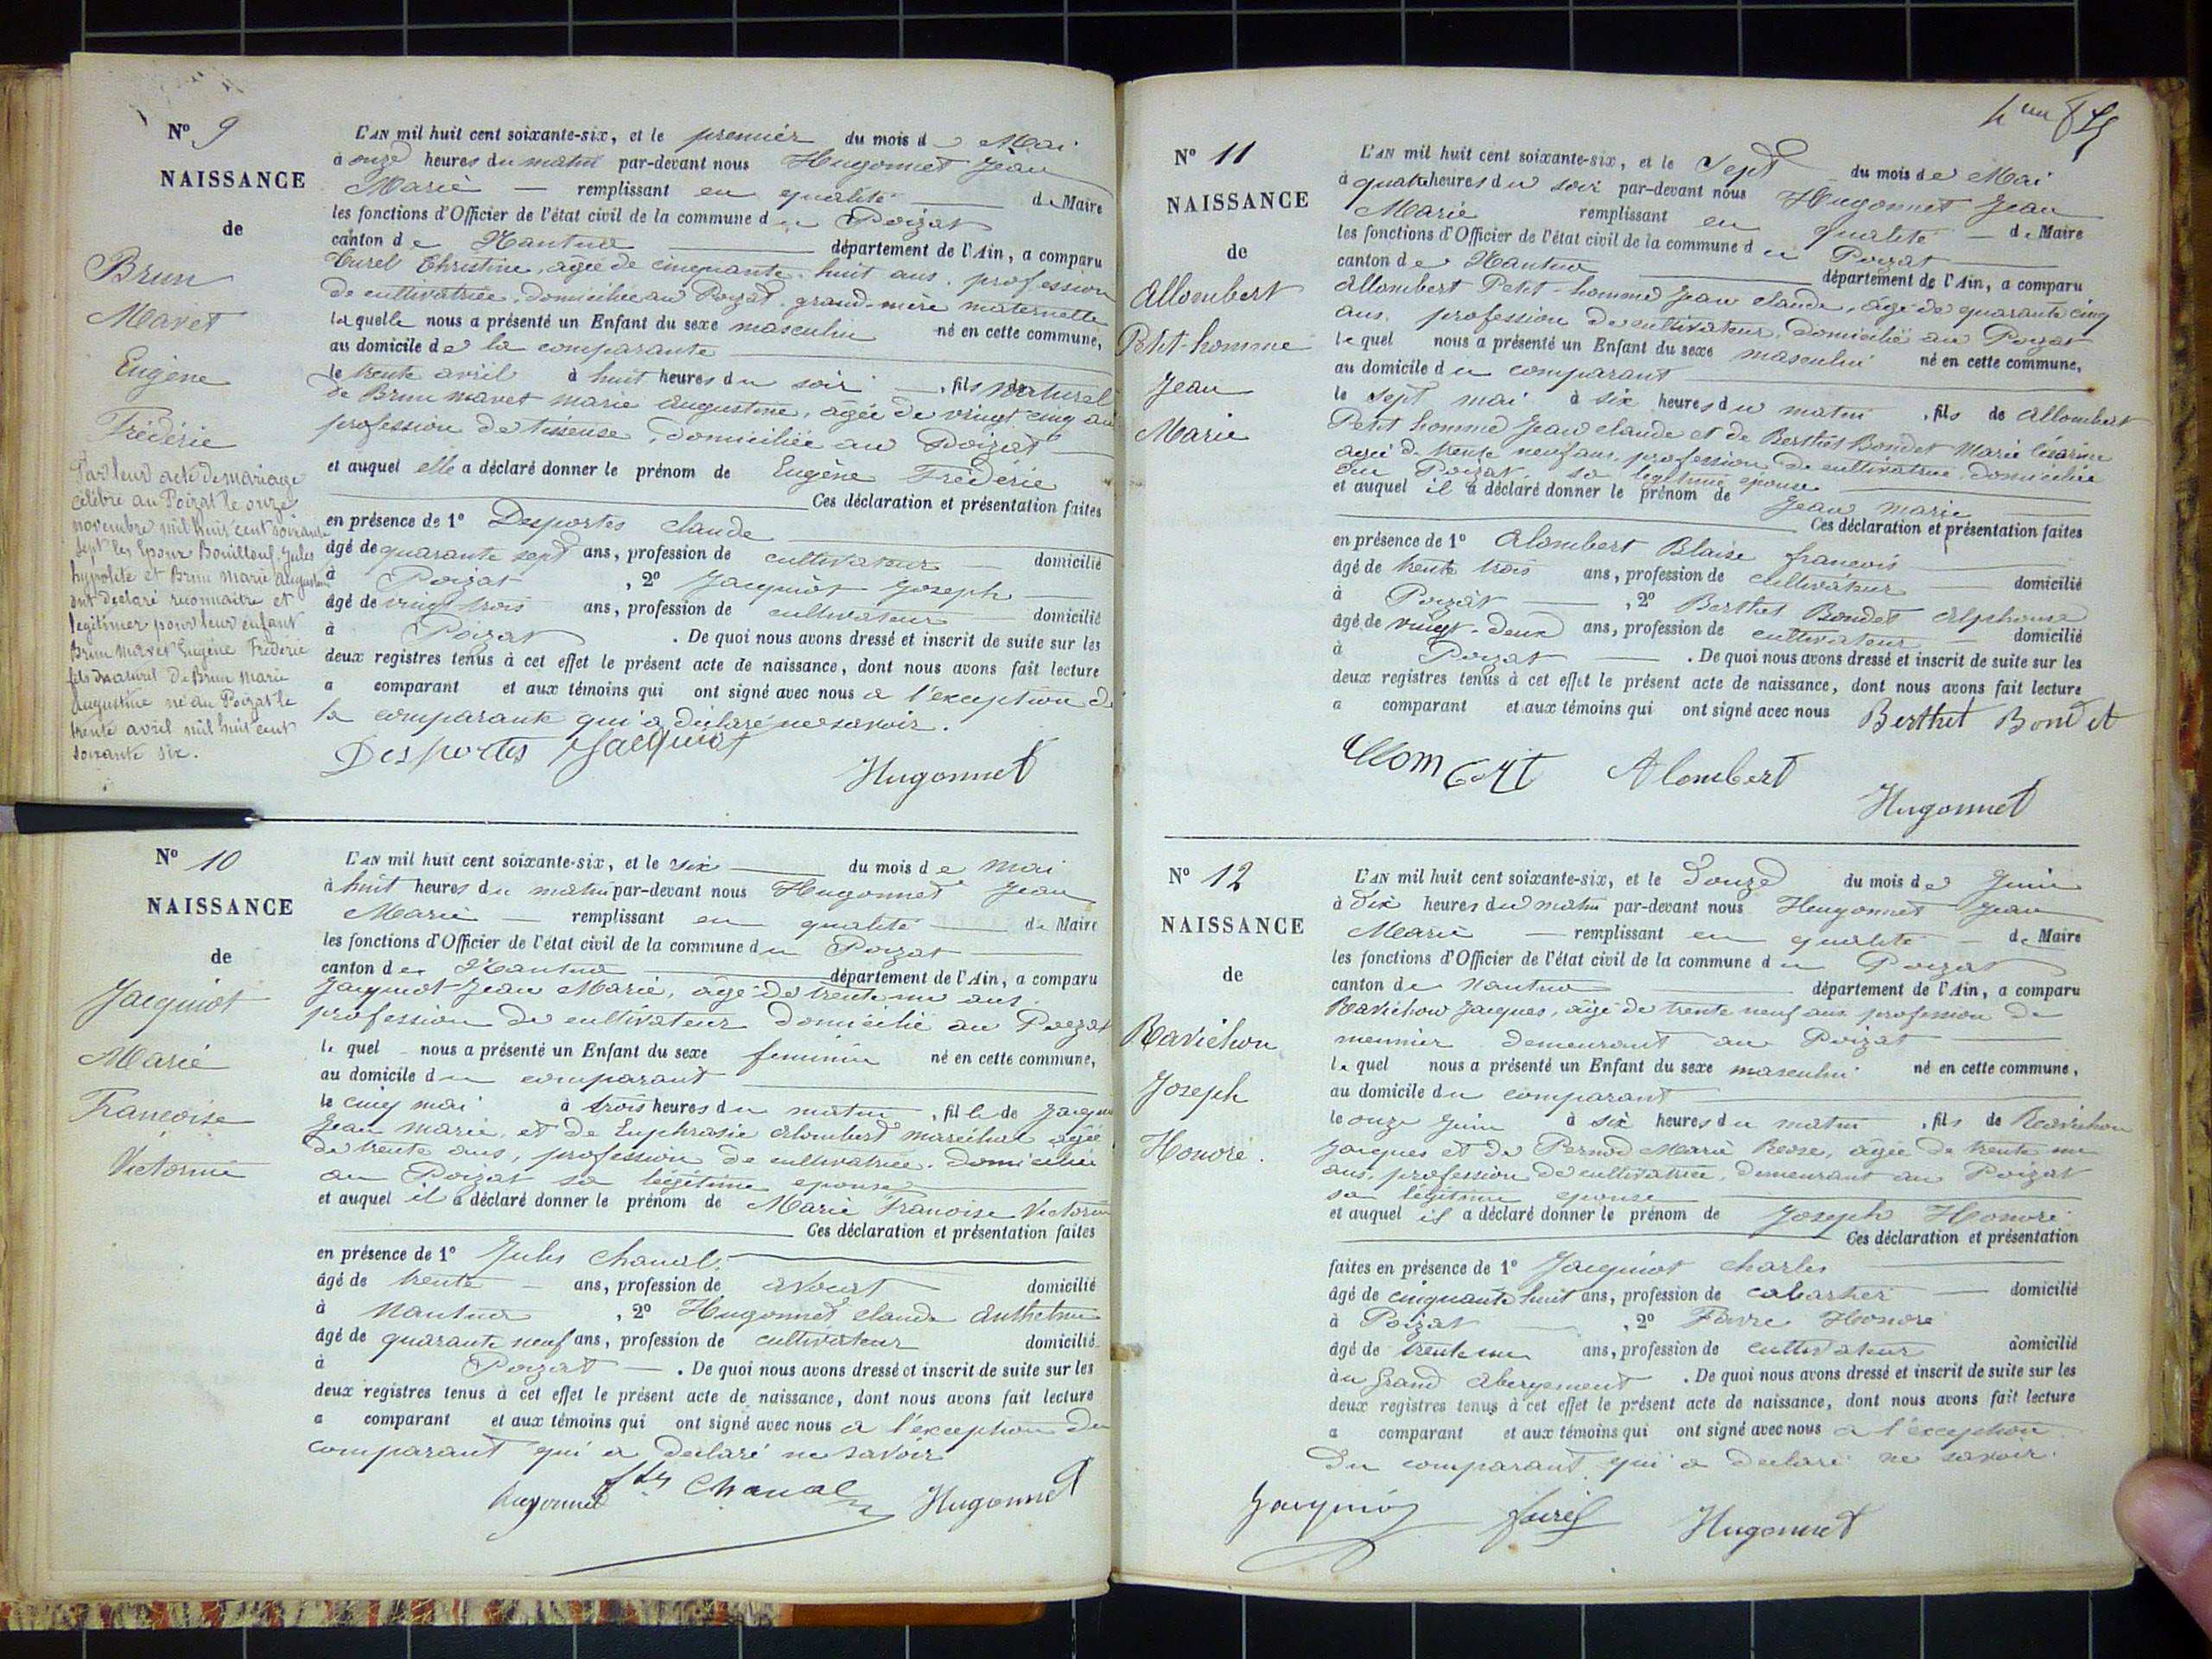 Nº 9
NAISSANCE
de
Brun
Mavet
Eugène
Frédéric
Par leur acte de mariage
célébré au Poizat le onze
novembre mil huit cent soixante
sept les Epoux Bouilloux Jules
hypolite et Brun Marie Augustine
ont déclaré reconnaitre et
legitimer pour leur enfant
Brun Mavet Eugène Frédéric
fils naturel de Brun Marie
Augustine né au Poizat le
trente avril mil huit cent
soixante six.
L'AN mil huit cent soixante-six, et le premier du mois de Mai
à onze heures du matin par-devant nous Hugonnet Jean
Marie — remplissant en qualité — de Maire
les fonctions d'Officier de l'état civil de la commune du Poizat
canton de Nantua — département de l'Ain, a comparu
Christine, agée de cinquante-huit ans, profession
de cultivatrice, domiciliée au Poizat, grand-mère maternelle
laquelle nous a présenté un Enfant du sexe masculin né en cette commune,
au domicile de la comparante
le trente avril à huit heures du soir —, fils naturel
de Brun mavet marie augustine, agée de vingt cinq ans
profession de tisseuse, domiciliée au Poizat —
et auquel elle a déclaré donner le prénom de Eugène Frédéric
Ces déclaration et présentation faites
en présence de 1º Desportes claude
âgé de quarante sept ans, profession de cultivateur — domicilié
à Poizat , 2º Jacquiot Joseph —
âgé de vingt trois ans, profession de cultivateur — domicilié
à Poizat . De quoi nous avons dressé et inscrit de suite sur les
deux registres tenus à cet effet le présent acte de naissance, dont nous avons fait lecture
a comparant et aux témoins qui ont signé avec nous a l'exception de
la comparante qui a déclaré ne savoir.
Desportes Jacquiot
Hugonnet
Nº 10
NAISSANCE
de
Jacquiot
Marie
Francoise
Victorine
L'AN mil huit cent soixante-six, et le six — du mois de mai
à huit heures du matin par-devant nous Hugonnet Jean
Marie — remplissant en qualité — de Maire
les fonctions d'Officier de l'état civil de la commune du Poizat —
canton de Nantua — département de l'Ain, a comparu
Jacquiot Jean Marie, agé de trente un ans,
profession de cultivateur domicilié au Poizat
lequel nous a présenté un Enfant du sexe feminin né en cette commune,
au domicile du comparant
le cinq mai à trois heures du matin , fille de Jacquiot
Jean marie, et de Euphrasie alombert maréchal agée
de trente ans, profession de cultivatrice, domiciliée
au Poizat sa légitime epouse
et auquel il a déclaré donner le prénom de Marie Francoise Victorine
Ces déclaration et présentation faites
en présence de 1º Jules Chanal
âgé de trente — ans, profession de avocat domicilié
à Nantua , 2º Hugonnet claude Anthelme
âgé de quarante neuf ans, profession de cultivateur domicilié
à Poizat — . De quoi nous avons dressé et inscrit de suite sur les
deux registres tenus à cet effet le présent acte de naissance, dont nous avons fait lecture
a comparant et aux témoins qui ont signé avec nous a l'exception du
comparant qui a déclaré ne savoir
hugonnet Chanal Hugonnet
Nº 11
NAISSANCE
de
Allombert
Petit-homme
Jean
Marie
L'AN mil huit cent soixante-six, et le Sept du mois de Mai
à quatre heures du soir par-devant nous Hugonnet Jean
Marie remplissant en qualité — de Maire
les fonctions d'Officier de l'état civil de la commune du Poizat —
canton de Nantua — département de l'Ain, a comparu
Allombert Petit-homme Jean claude, agé de quarante cinq
ans, profession de cultivateur, domicilié au Poizat
lequel nous a présenté un Enfant du sexe masculin né en cette commune,
au domicile du comparant
le sept mai à six heures du matin , fils de Allombert
Petit homme Jean claude et de Berthet Bondet Marie Césarine
agée de trente neuf ans, profession de cultivatrice, domiciliée
au Poizat, sa légitime epouse
et auquel il a déclaré donner le prénom de Jean marie
Ces déclaration et présentation faites
en présence de 1º Alombert Blaise francois —
âgé de trente trois ans, profession de cultivateur — domicilié
à Poizat — , 2º Berthet Bondet Alphonse
âgé de vingt-deux ans, profession de cultivateur domicilié
à Poizat — . De quoi nous avons dressé et inscrit de suite sur les
deux registres tenus à cet effet le présent acte de naissance, dont nous avons fait lecture
a comparant et aux témoins qui ont signé avec nous Berthet Bondet
Allombert Alombert
Hugonnet
Nº 12
NAISSANCE
de
Ravichon
Joseph
Honoré.
L'AN mil huit cent soixante-six, et le Douze du mois de Juin
à dix heures du matin par-devant nous Hugonnet Jean
Marie — remplissant en qualité — de Maire
les fonctions d'Officier de l'état civil de la commune du Poizat
canton de Nantua — département de l'Ain, a comparu
Ravichon Jacques, agé de trente neuf ans profession de
meunier demeurant au Poizat —
lequel nous a présenté un Enfant du sexe masculin né en cette commune,
au domicile du comparant
le onze Juin à six heures du matin , fils de Ravichon
Jacques et de Pernod Marie Rose, agée de trente un
ans, profession de cultivatrice, demeurant au Poizat
sa légitime epouse
et auquel il a déclaré donner le prénom de Joseph Honoré
Ces déclaration et présentation
faites en présence de 1º Jacquiot charles
âgé de cinquante huit ans, profession de cabartier — domicilié
à Poizat — , 2º Favre Honoré
âgé de trente un ans, profession de cultivateur domicilié
au Grand Abergement . De quoi nous avons dressé et inscrit de suite sur les
deux registres tenus à cet effet le présent acte de naissance, dont nous avons fait lecture
a comparant et aux témoins qui ont signé avec nous a l'exception
du comparant qui a déclaré ne savoir.
Jacquiot Hugonnet